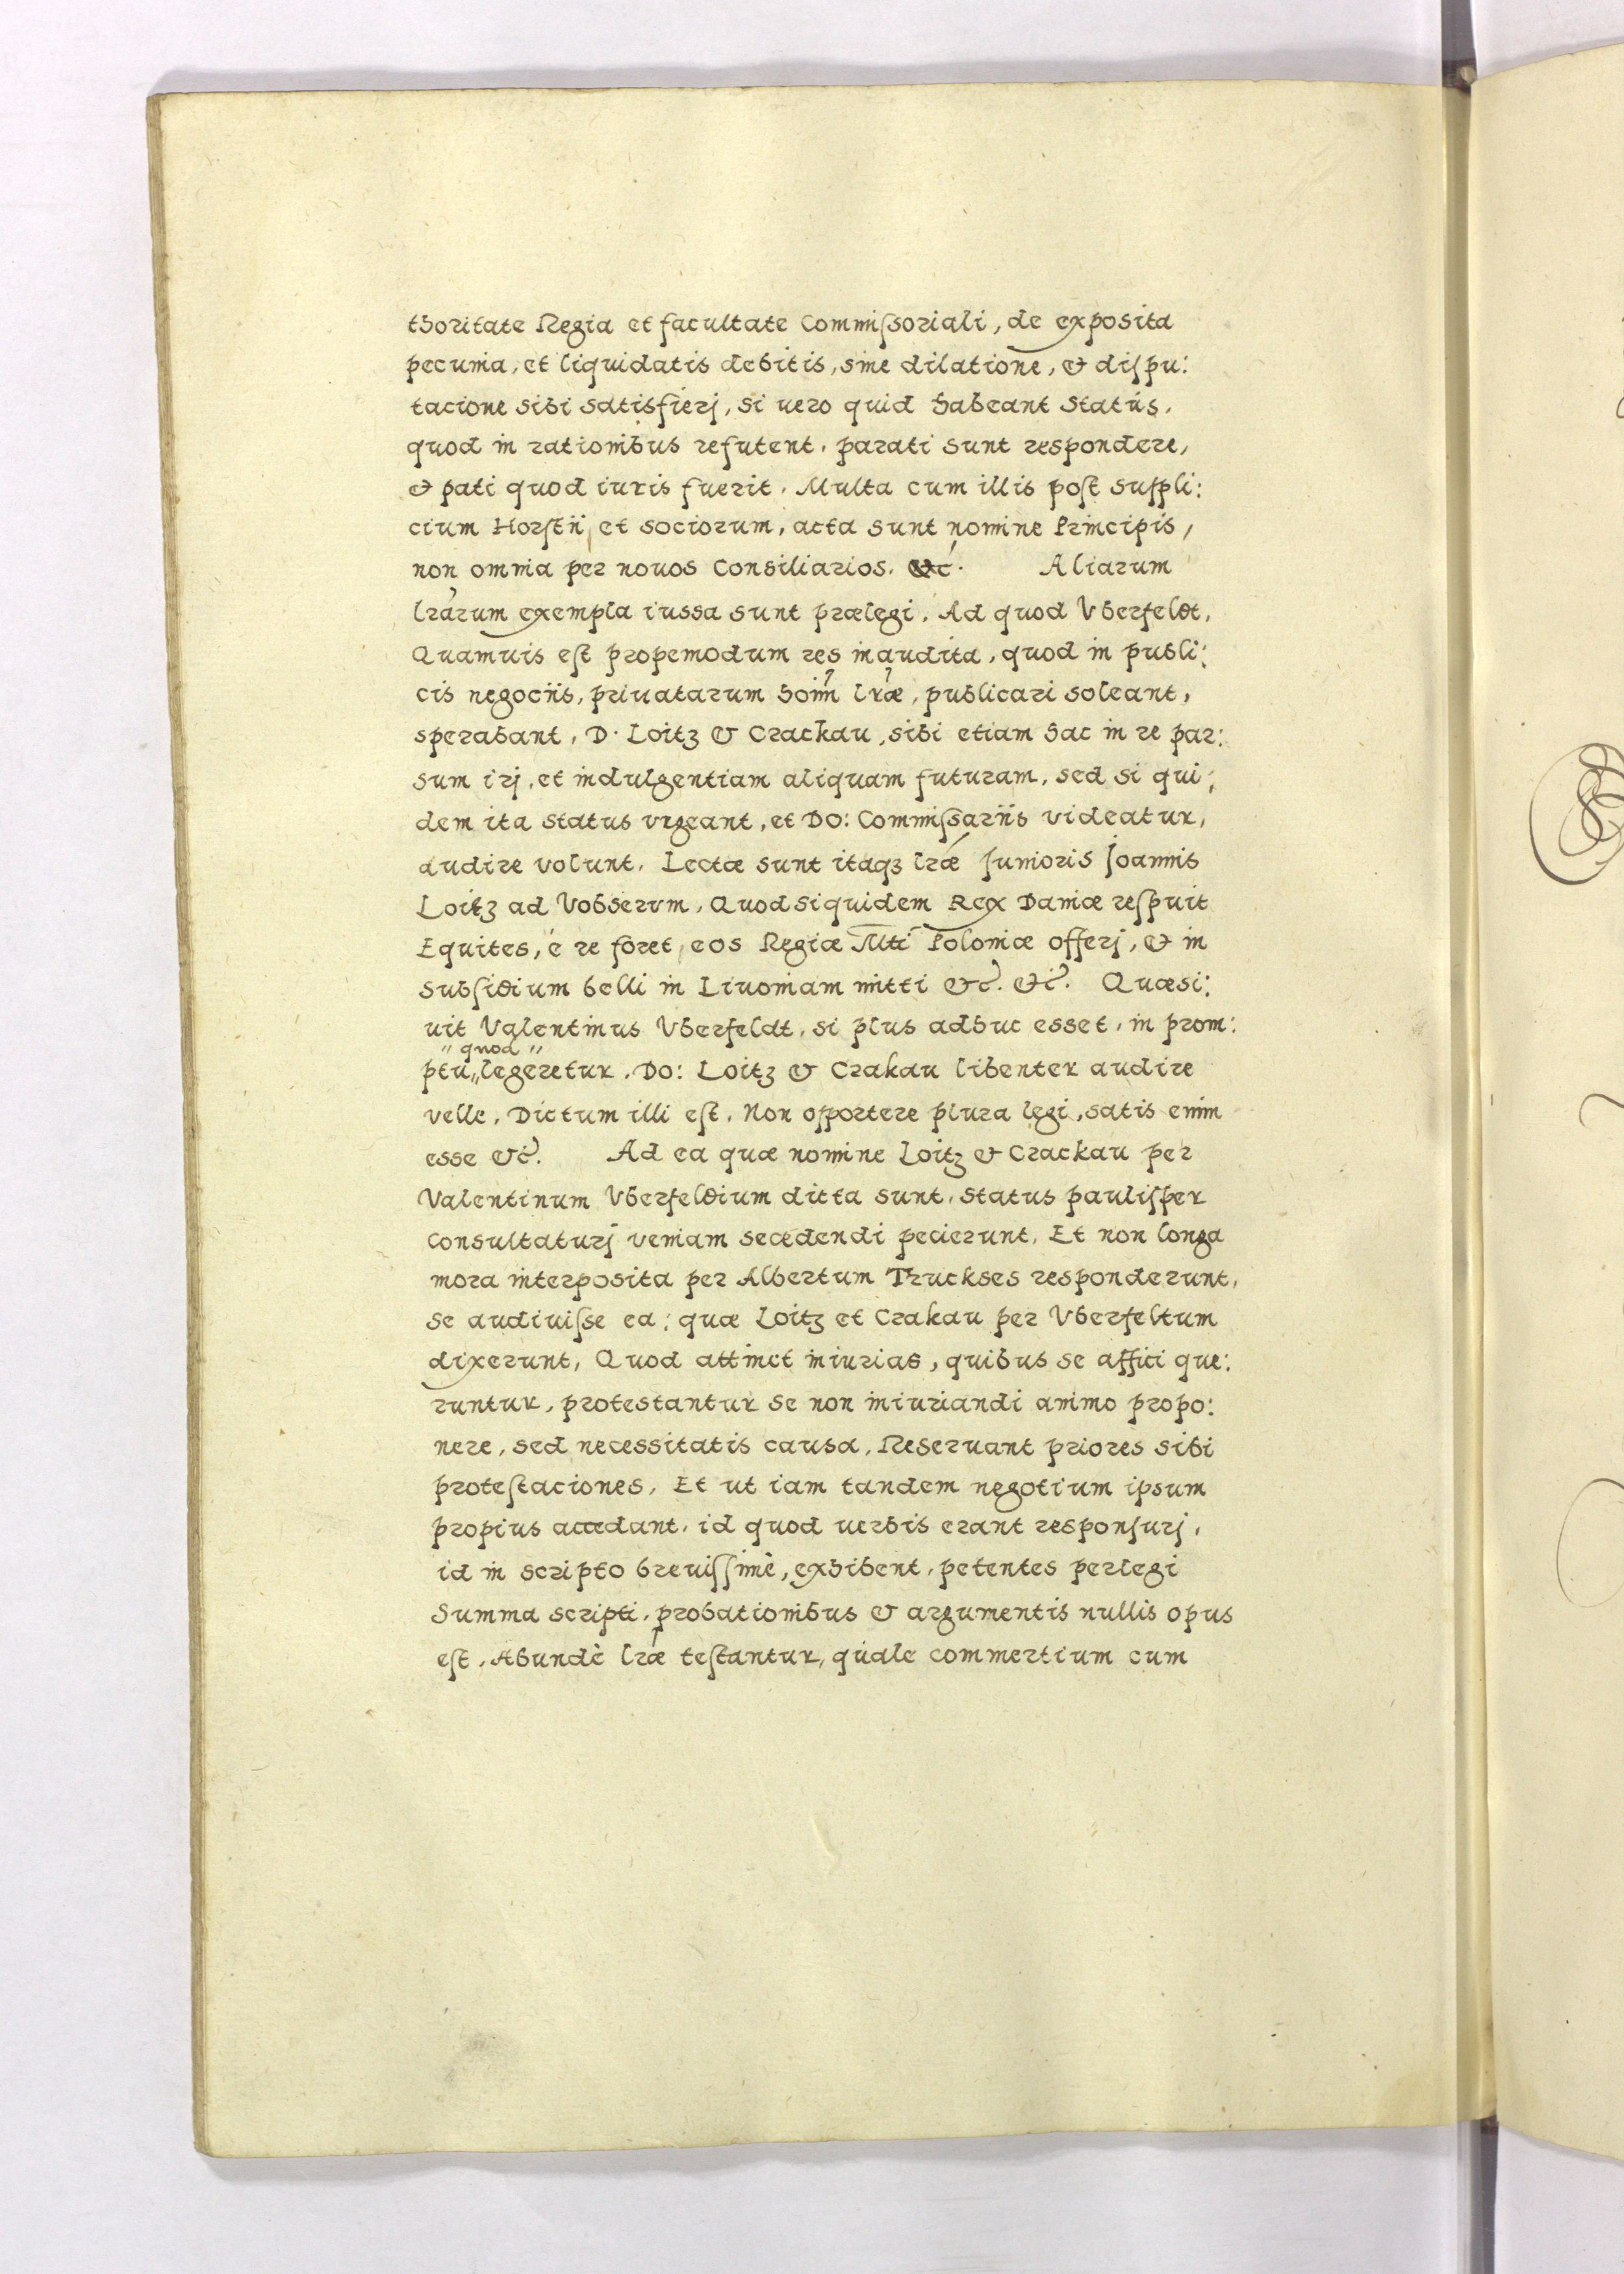 thoritate Regia et facultate Commiſsoriali, de exposita
pecunia, et liquidatis debitis, sine dilatione, & diſpu:
tacione sibi satisfierj, si uero quid habeant Status,
quod in rationibus refutent, parati sunt respondere,
& pati quod iuris fuerit. Multa cum illis poſt suppli:
cium Horſtii, et sociorum, acta sunt nomine Principis,
non omnia per nouos Consiliarios. &c. Aliarum
lrarum exempla iussa sunt prælegi. Ad quod Vberfeldt,
Quamuis eſt propemodum res inaudita, quod in publi:
cis negociis, priuatarum hoim lræ, publicari soleant,
sperabant, D. Loitz & Crackau, sibi etiam hac in re par:
sum irj, et indulgentiam aliquam futuram, sed si qui:
dem ita status vrgeant, et Do: Commiſsariis videatur,
audire volunt. Lectæ sunt itaqꝫ lræ Junioris Joannis
Loitz ad Vobserum, Quod siquidem Rex Daniæ reſpuit
Equites, é re foret, eos Regiæ Mti Poloniæ offerj, & in
subſidium belli in Livoniam mitti &c. &c. Quæsi:
uit Valentinus Vberfeldt, si plus adhuc esset, in prom:
"quod"
ptu„legeretur. Do: Loitz & Crakau libenter audire
velle. Dictum illi eſt. Non opportere plura legi, satis enim
esse &c. Ad ea quæ nomine Loitz & Crackau per
Valentinum Vberfeldium dicta sunt, Status pauliſper
Consultaturj veniam secedendi pecierunt. Et non longa
mora interposita per Albertum Truckses responderunt,
Se audiuiſse ea: quæ Loitz et Crakau per Vberfeltum
dixerunt, Quod attinet iniurias, quibus se affici que:
runtur, protestantur se non iniuriandi animo propo:
nere, sed necessitatis causa, Reseruant priores sibi
proteſtaciones. Et ut iam tandem negotium ipsum
propius accedant, id quod uerbis erant responſurj,
id in scripto breuiſſimè, exhibent, petentes perlegi
Summa scripti, probationibus & argumentis nullis opus
eſt. Abundè lræ teſtantur, quale commertium cum